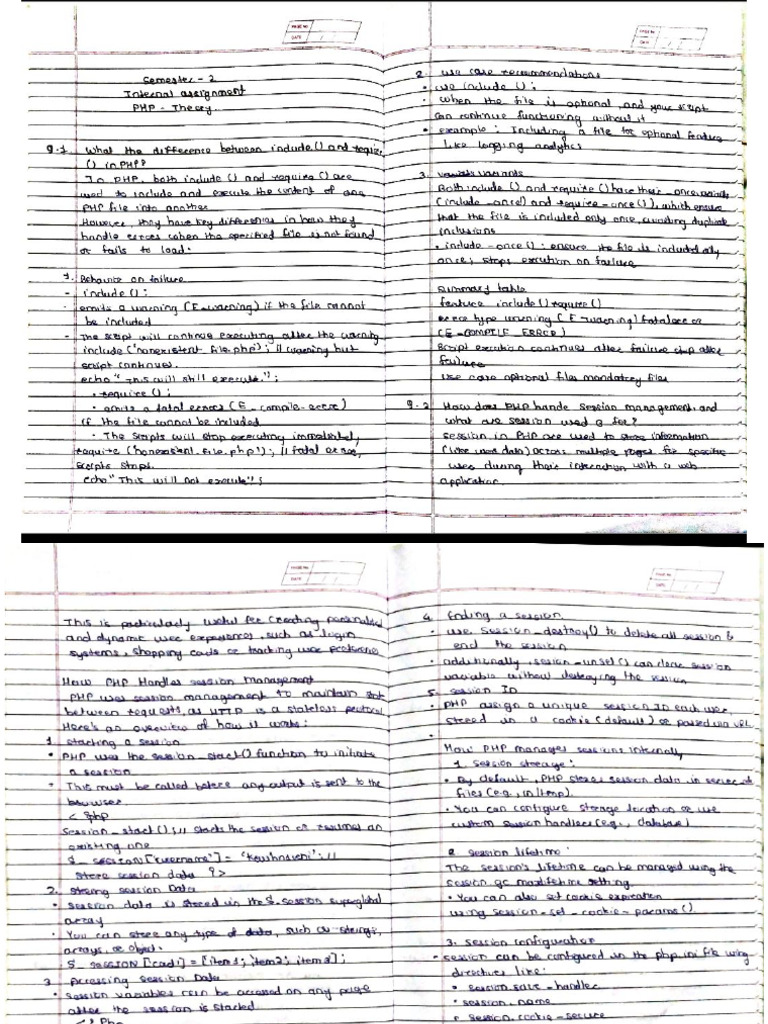 PAGE NO.
DATE
Semester - 2
Internal assignment
PHP - Theory.
Q.1 What the difference between include() and require
() in PHP?
In PHP, both include () and require () are
used to include and execute the content of one
PHP file into another
However, they have key differences in how they
handle errors when the specified file is not found
or fails to load:
1. Behavior on failure
- include () :
- emits a warning (E-warning) if the file cannot
be included
- The script will continue executing after the warning
include ('nonexistent.file.php'); // warning but
script continues.
echo "This will still execute.";
• require () :
• emits a fatal error (E_compile-error)
if the file cannot be included
• The scripts will stop executing immediately,
require ('nonexistent.file.php'); // fatal error,
scripts stops.
echo "This will not execute";
PAGE NO.
DATE
2. use case recommendations
• use include () :
• when the file is optional, and your script
can continue functioning without it
• example : Including a file for optional feature
like logging analytics
3. variants
Both include () and require () have their -once
(include-once) and require-once()), which ensure
that the file is included only once, avoiding duplicate
inclusions
• include-once () : ensure the file is included only
once; stops execution on failure
summary table
feature include() require()
error type warning (E-warning) fatal error
(E-COMPILE_ERROR)
Script execution continues after failure after
failure
use case optional files mandatory files
Q.2 How does PHP hande session management, and
what are session used for?
session in PHP are used to store information
(like user data) across multiple pages for specific
user during their interaction with a web
application.
PAGE NO.
DATE
This is particularly useful for creating personalised
and dynamic user experiences, such as login
systems, shopping carts or tracking user preferences
How PHP Handles session management
PHP uses session management to maintain state
between requests, as HTTP is a stateless protocol
Here's an overview of how it works:
1. starting a session
• PHP uses the session-start() function to initiate
a session
• This must be called before any output is sent to the
browser.
< ?php
Session-start(); // starts the session or resumes an
existing one
$_SESSION["username"] = //
store session data ?>
2. storing session Data
• session data is stored in the $.session superglobal
array
• You can store any type of data, such as strings,
arrays, or object.
$_SESSION[card1] = [item1; item2; item3];
3. Accessing session Data
• session variables can be accessed on any page
after the session is started
<? Php
PAGE NO.
DATE
4. Ending a session
• use session-destroy() to delete all session &
end the session
• additionally, session-unset() can clear session
variable without destroying the session
5. session ID
• PHP assign a unique session ID each user,
stored in a cookie (default) or passed via URL
•
How PHP manages sessions internally
1. session storage :
• By default, PHP stores session data in server at
files (e.g., in /tmp).
• You can configure storage location or use
custom session handlers (e.g., database)
2. session lifetime :
The session's lifetime can be managed using the
session.gc maxlifetime setting.
• You can also set cookie expiration
using session-set-cookie-params().
3. session configuration
• session can be configured in the php.ini file using
directives like:
• session.save-handler
• session.name
• session.cookie-secure